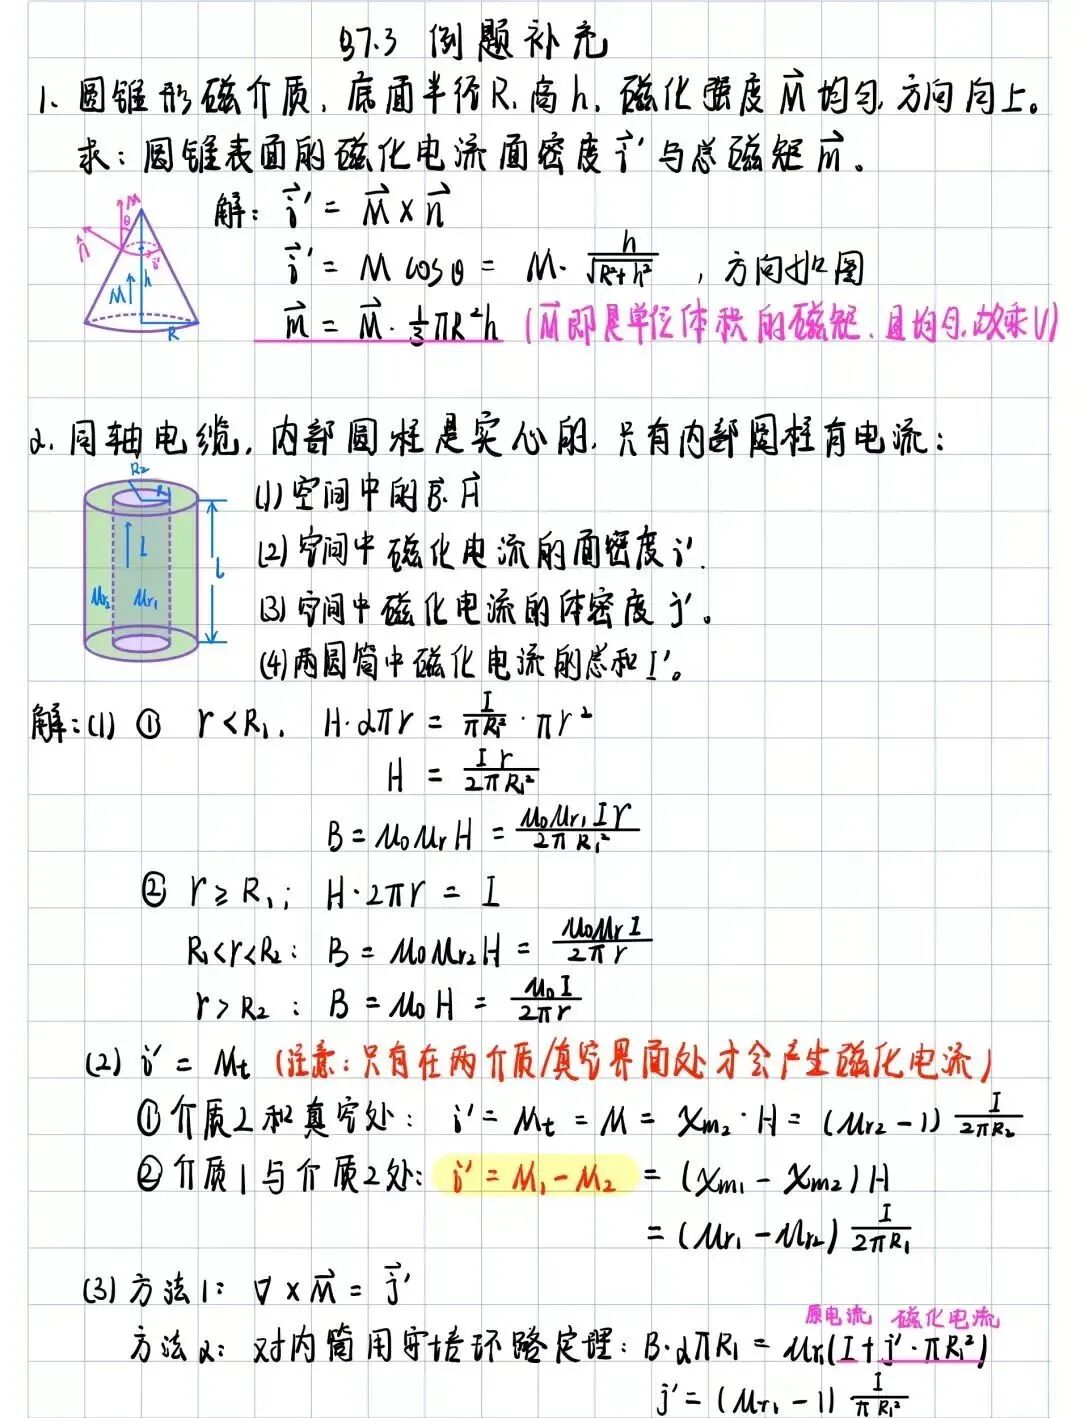 §7.3 例题补充
1、圆锥形磁介质，底面半径R，高h，磁化强度M⃗均匀，方向向上。
求：圆锥表面的磁化电流面密度i⃗'与总磁矩m⃗。
解：i⃗' = M⃗ × n⃗
i⃗' = M cosθ = M · h/√(R²+h²) ，方向如图
m⃗ = M⃗ · 1/3 πR²h (M⃗即是单位体积的磁矩，且均匀，故乘V)
M
θ
n⃗
i⃗'
M h
R
2. 同轴电缆，内部圆柱是实心的，只有内部圆柱有电流：
(1) 空间中的B⃗、H⃗
(2) 空间中磁化电流的面密度i'.
(3) 空间中磁化电流的体密度j'。
(4) 两圆筒中磁化电流的总和I'。
R₂
R₁
I
L
μr₂ μr₁
解：(1) ① r < R₁， H·2πr = I/πR₁² · πr²
H = Ir/2πR₁²
B = μ₀μrH = μ₀μr₁Ir/2πR₁²
② r ≥ R₁； H·2πr = I
R₁<r<R₂： B = μ₀μr₂H = μ₀μrI/2πr
r > R₂ ： B = μ₀H = μ₀I/2πr
(2) i' = Mt (注意：只有在两介质/真空界面处才会产生磁化电流)
① 介质2和真空处： i' = Mt = M = χm₂·H = (μr₂-1) I/2πR₂
② 介质1与介质2处： i' = M₁-M₂ = (χm₁ - χm₂)H
= (μr₁ - μr₂) I/2πR₁
(3) 方法1： ∇ × M⃗ = j⃗'
原电流 磁化电流
方法2： 对内筒用安培环路定理：B·2πR₁ = μr₁(I + j'·πR₁²)
j' = (μr₁ - 1) I/πR₁²